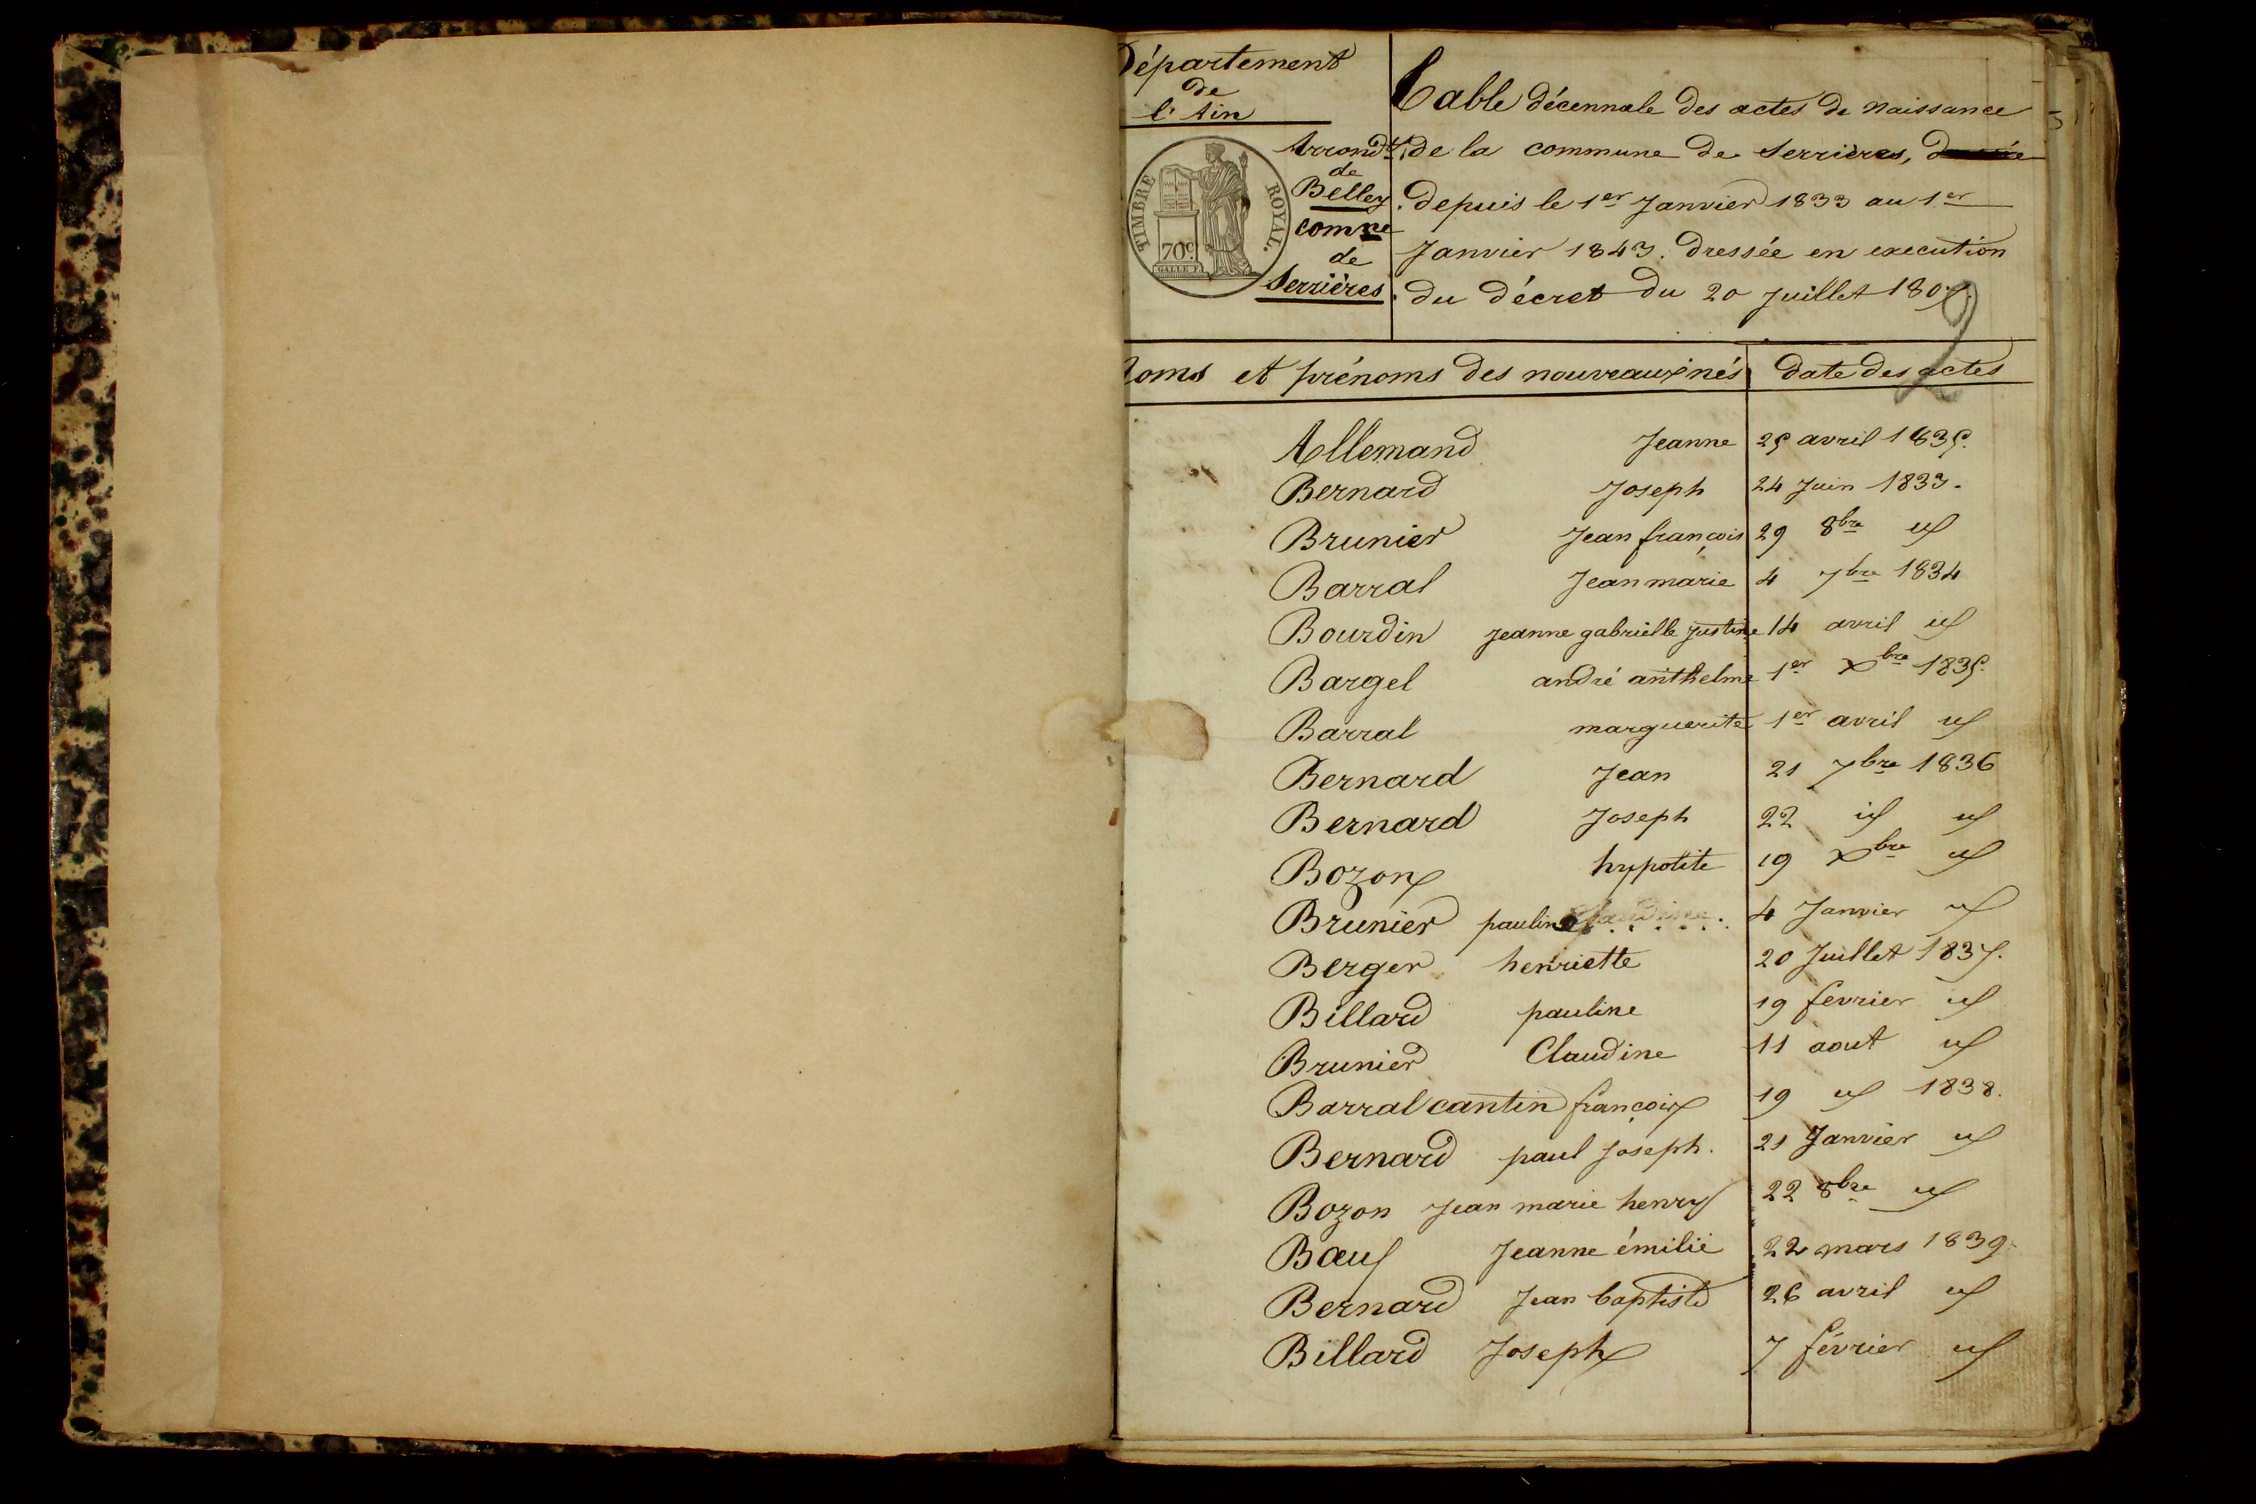 Département
de
l'Ain
TIMBRE ROYAL.
70c.
GALLE F.
Arrondt
de
Belley
comne
de
Serrières
Table décennale des actes de naissance
de la commune de Serrières,
depuis le 1er Janvier 1833 au 1er
Janvier 1843. dressée en execution
du décret du 20 Juillet 1807.
2
noms et prénoms des nouveaux nés date des actes
Allemand Jeanne 25 avril 1835.
Bernard Joseph 24 Juin 1833.
Brunier Jean françois 29 8bre id
Barral Jean marie 4 7bre 1834
Bourdin Jeanne gabrielle Justine 14 avril id
Bargel andré anthelme 1er Xbre 1835.
Barral marguerite 1er avril id
Bernard Jean 21 7bre 1836
Bernard Joseph 22 id id
Bozon hypolite 19 Xbre id
Brunier pauline 4 Janvier id
Berger henriette 20 Juillet 1837.
Billard pauline 19 février id
Brunier Claudine 11 aout id
Barral cantin françois 19 id 1838.
Bernard paul Joseph. 21 Janvier id
Bozon Jean marie henry 22 8bre id
Bœuf Jeanne émilie 22 mars 1839.
Bernard Jean baptiste 26 avril id
Billard Joseph 7 février id